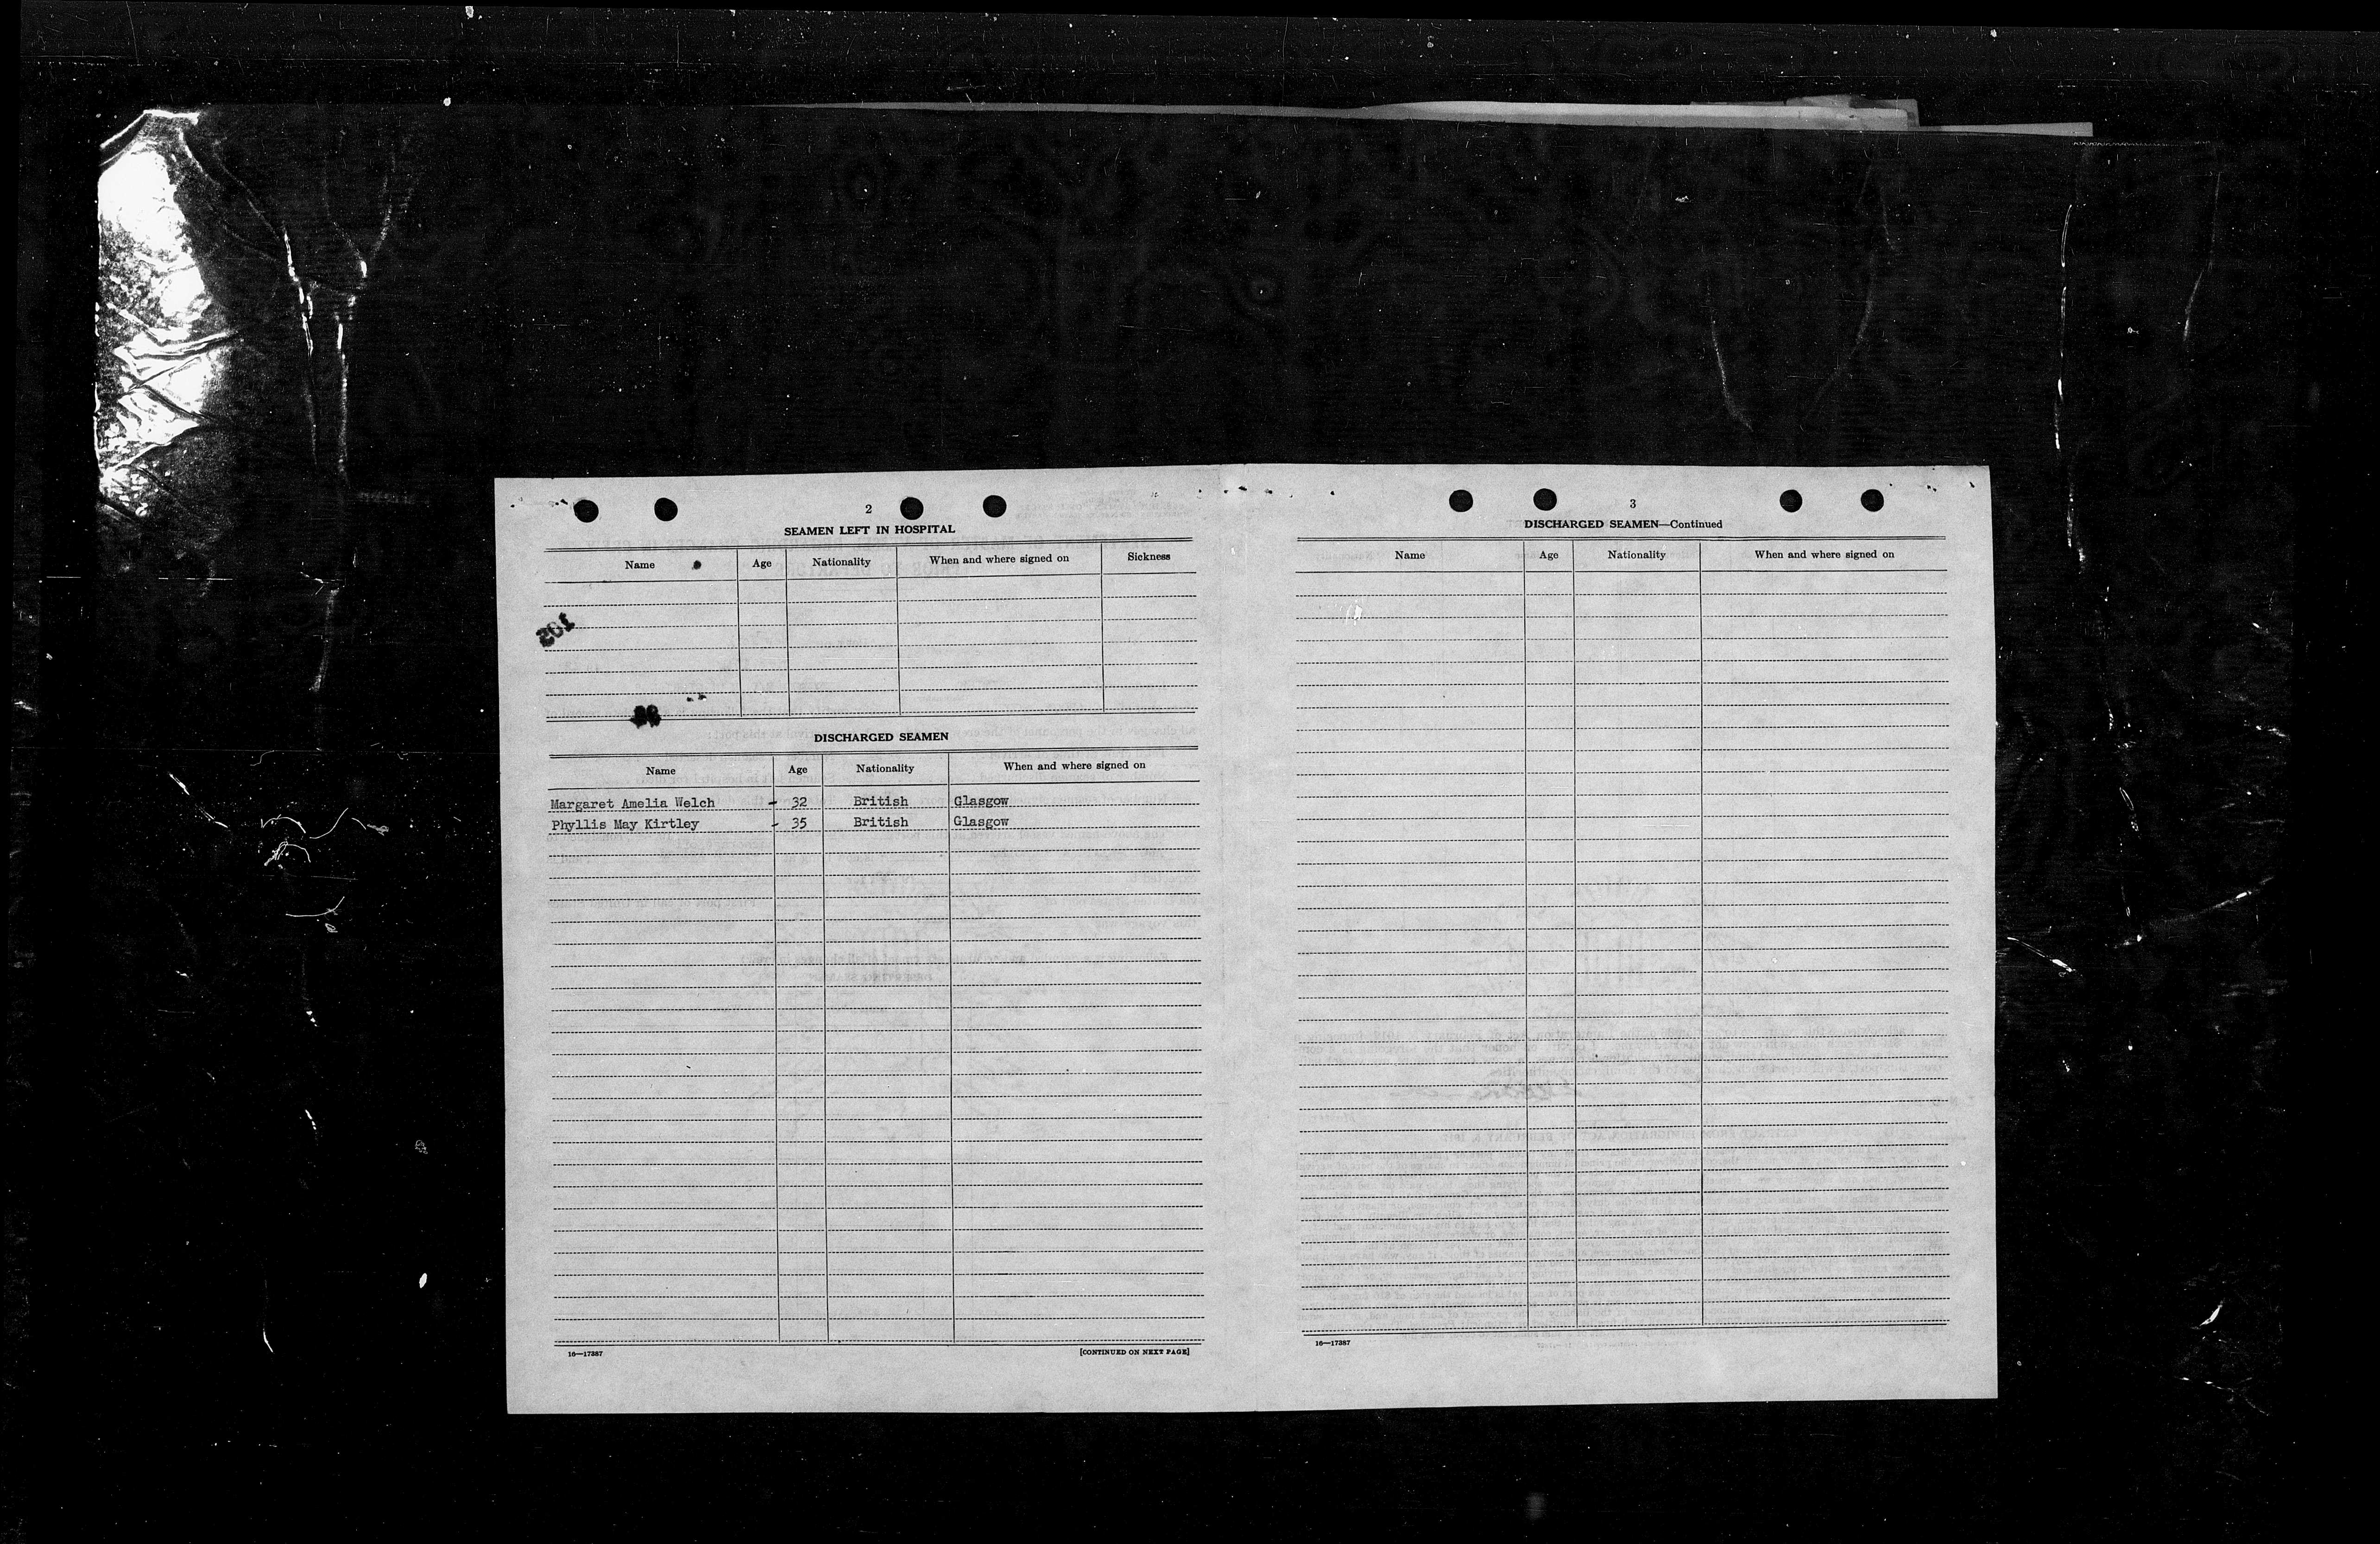 2
SEAMEN LEFT IN HOSPITAL
Name Age Nationality When and where signed on Sickness
DISCHARGED SEAMEN
Name Age Nationality When and where signed on
Margaret Amelia Welch - 32 British Glasgow
Phyllis May Kirtley - 35 British Glasgow
16—17387 [CONTINUED ON NEXT PAGE]
3
DISCHARGED SEAMEN—Continued
Name Age Nationality When and where signed on
16—17387